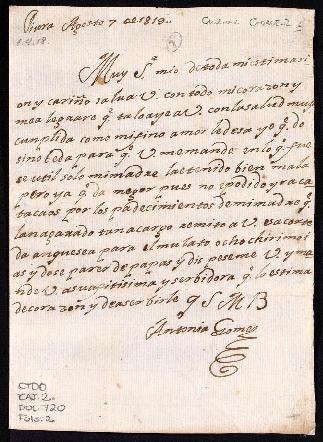 Piura Agosto 7 de 1819.
Muy Sr mio de toda mi estimasi
on y cariño salua V con todo mi corazon y
mea legaare qe taloayea V con la salud muy
cumplida como mi fino amor le desa yo qe dó
sino beda para qe V me mande en lo qe fue
se util solo mi madre la e tenido bien mala
pero ya qe da mejor pues no e podido
por los padecimientos de mi madre qe
remito a V esa corte
da anguesea para el mulato ocho chirimoi
as y dose pares de papas y dispeseme V y ma
nde V asu apitisima y serbidora qe lo estima
de corazon y desea serbirle q S M B
Antonia Gomes
CTDO
CAJ. 2
DOC. 720
FOLIO. 2